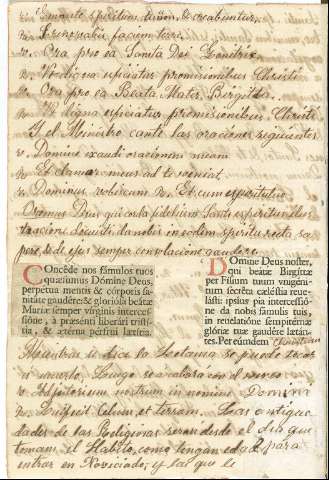 Emmitte spiritum tuum, & creabuntur.
R. Et renovabis faciem terre
V. Ora pro ea Santa Dei Genitrix.
R. Vt digna efficiatur promissionibus Christi
V. Ora pro ea Beata Mater Birgitta.
R. Vt digna efficiatur promissionibus Christi
Y el Ministro cante las oraciones siguientes
V. Domine exaudi orationem meam
R. Et clamor meus ad te veniat.
V. Dominus vobiscum R. Et cum espiritu tuo
Oremus Deus qui corda fidelium Santi espiritus illus
tratione docuisti da nobis in eodem spiritu recta sa
pere, & de ejus semper consolatione gaudere.
Concéde nos fámulos tuos
quæsumus Dómine Deus,
perpetua mentis & córporis sa-
nitáte gaudére: & gloriósa beátæ
Maríæ semper vírginis intercessi-
óne, à præsenti liberári tristí-
tia, & æterna pérfrui lætítia.
Dómine Deus noster,
qui beátæ Birgíttæ
per Fílium tuum unigéni-
tum secréta cæléstia reve-
lásti: ipsíus pia intercessió-
ne da nobis fámulis tuis,
in revelatióne sempitérnæ
glóriæ tuæ gaudére lætán-
tes. Per eúmdem Christum
Mientras se dice la se puede tocar
a muerto. Luego se acabara con el verso
V. Adjutorium nostrum in nomine Domina
R. Qui fecit Celum, et terram. Las antigue
dades de las Religiosas seran desde el dia que
toman el Habito, como tengan edad para
entrar en Noviciado, y las que le